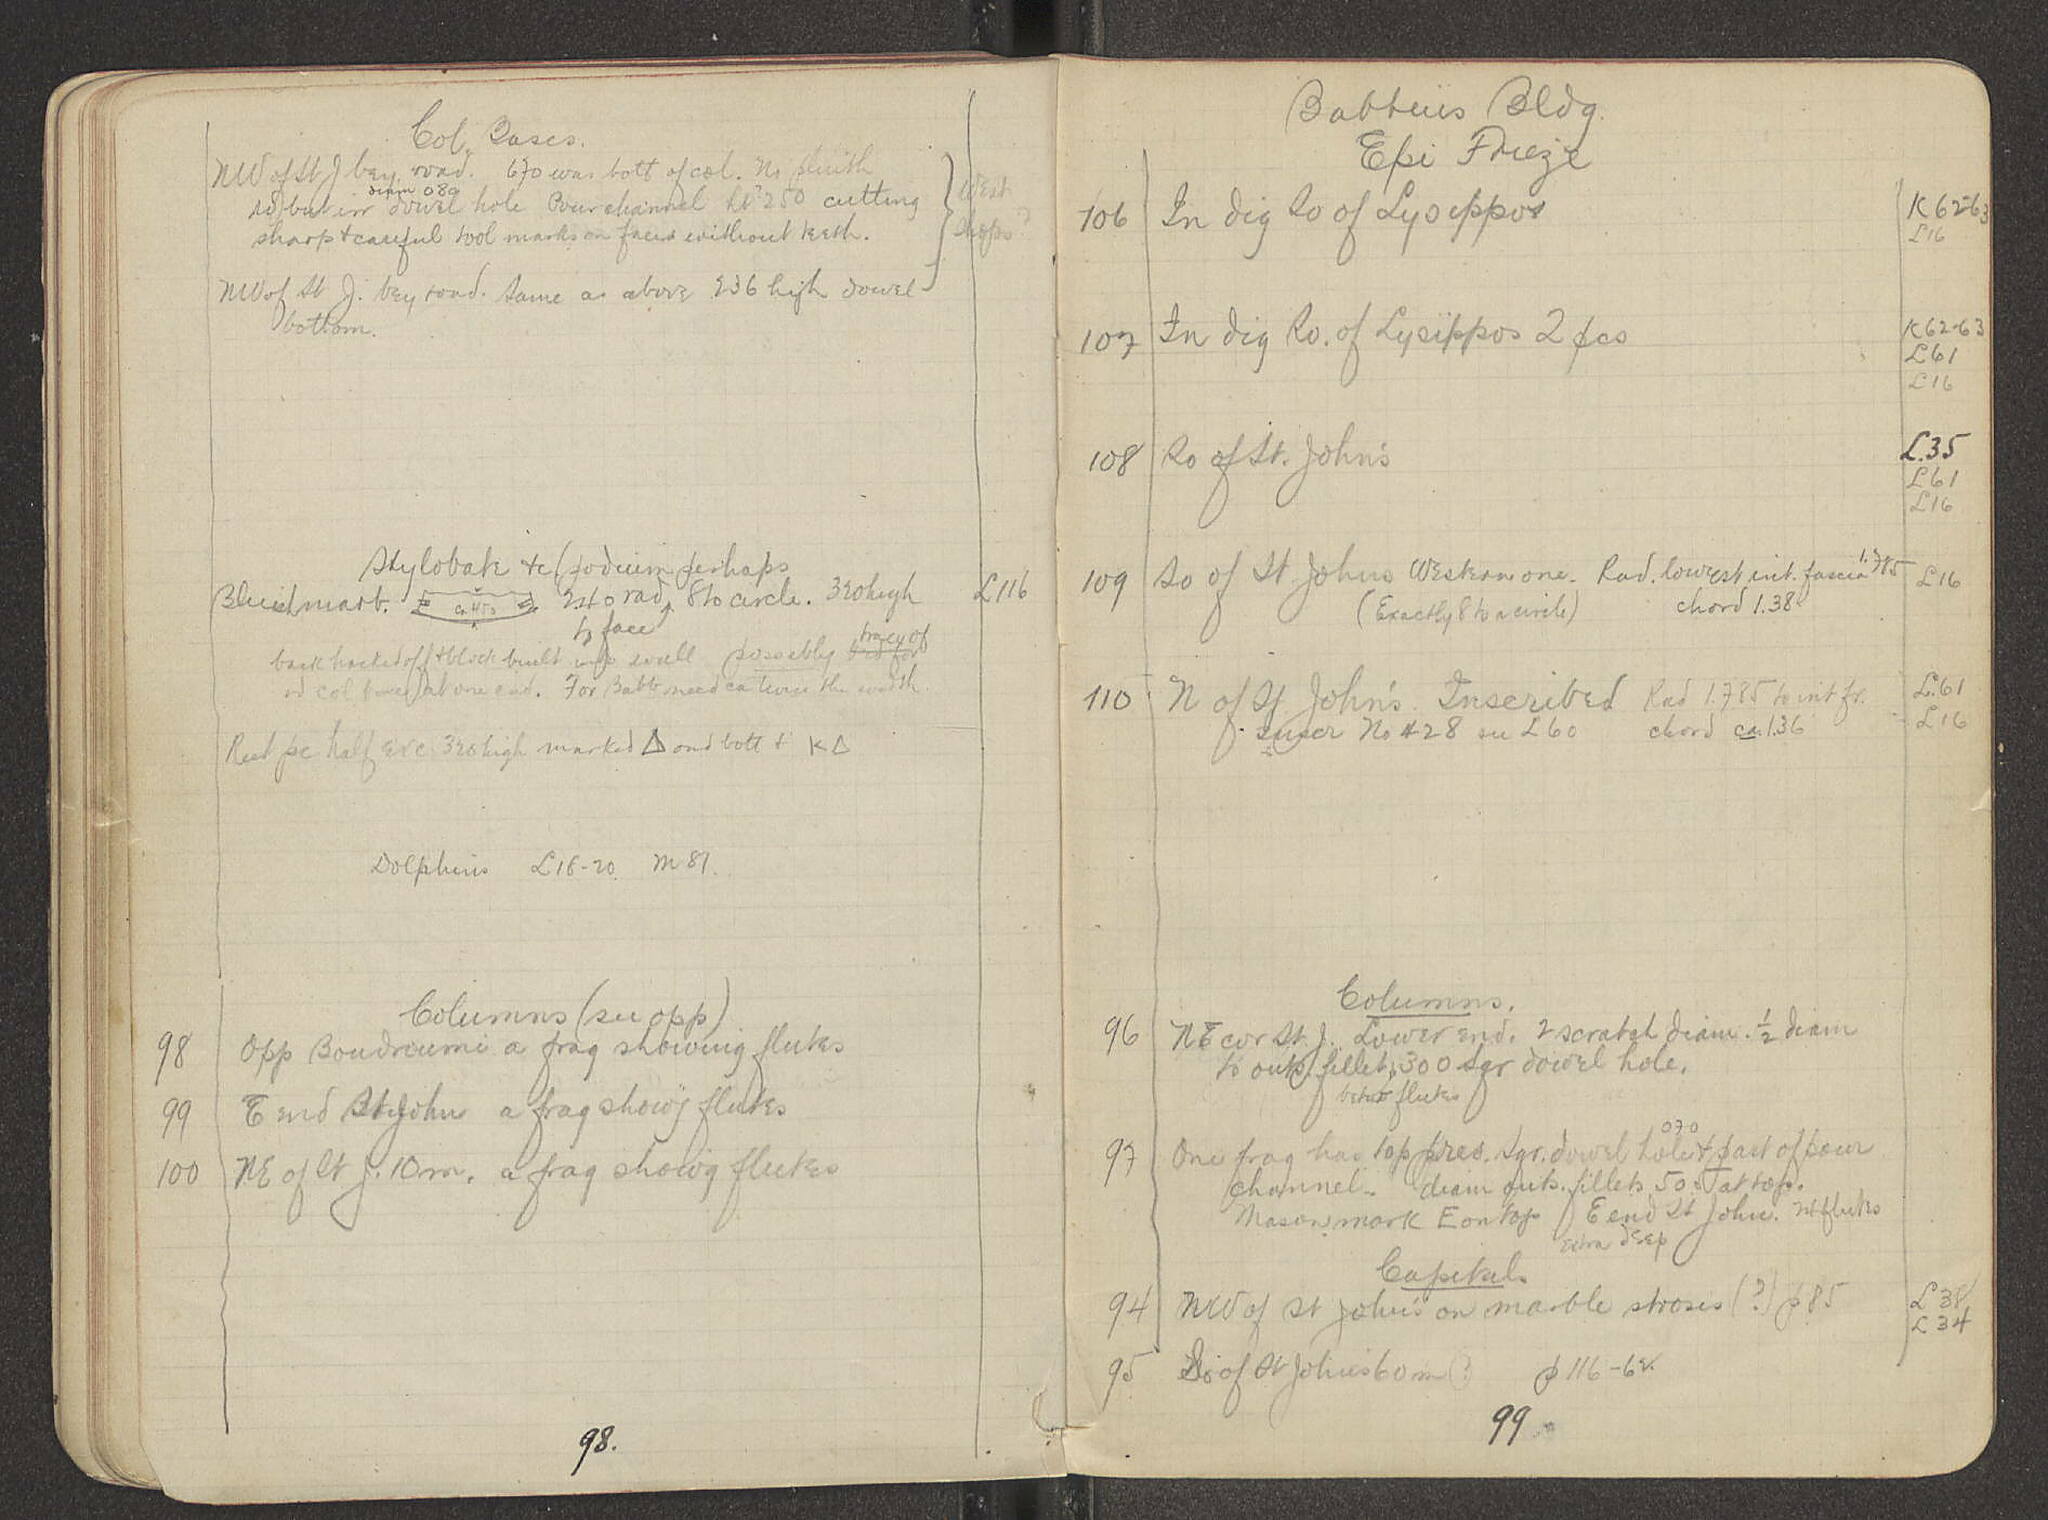 Col. Bases.
NW of St J bey. road. 670 was bott of col. No plinth
diam 080
dowel hole Pour channel ht 250 cutting
sharp & careful tool marks on faces without teeth.
West
Shops?
NW of St J. bey road. Same as above 236 high dowel
bottom.
Stylobate &c (podium perhaps
Bluish marb. ca 450 rad 8 to circle. 320 high L116
to face
back hacked off & block built into wall possibly traces of
col at one end. For Babb need ca twice the width.
Rect pc half exc 320 high marked Δ on bott & KΔ
Dolphins L18-20 M 81.
Columns (see opp)
98 Opp Boudroumi a frag showing flutes
99 E end St John a frag showg flutes
100 NE of St J. 10 m. a frag showg flutes
98.
Babbius Bldg.
Epi Frieze
106 In dig So of Lysippos K 62-63
L16
107 In dig So. of Lysippos 2 pcs K 62-63
L61
L16
108 So of St. John's L.35
L61
L16
109 So of St Johns Western one. Rad. lowest int. fascia 1.785 L16
(Exactly 8 to a circle) chord 1.38
110 N of St John's. Inscribed Rad 1.785 to int fr. L.61
Inscr No 428 see L60 chord ca. 1.36 L16
Columns.
96 NE cor St J. Lower end. 2 scratch diam. ½ diam
to outs. fillets 300 sqr dowel hole.
betw flutes
97 One frag has top pres. Sqr. dowel hole 070 & part of pour
channel. diam outs. fillets 50 at top.
Mason mark E on top E end St John. flutes
extra deep
Capitals
94 NW of St John's on marble stroses (?) p 85 L 38
L 34
95 So of St Johns 60 m (?) p 116-6
99